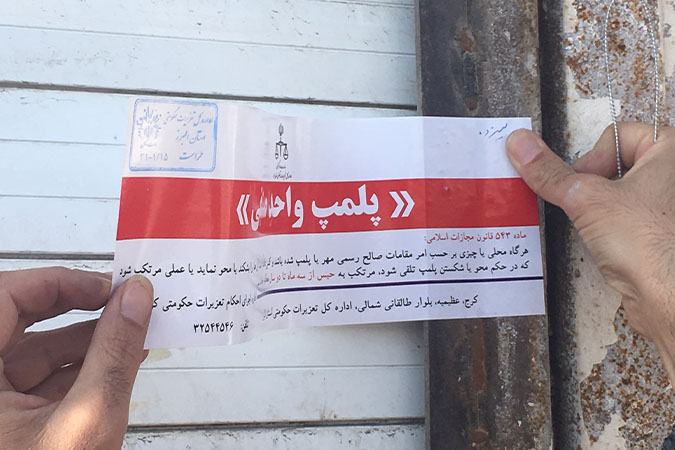 استان البرز
حراست
۲۱-۰۱/۱۵
« پلمپ واحد
ماده ۵۴۳ قانون مجازات اسلامی:
هرگاه محلی یا چیزی بر حسب امر مقامات صالح رسمی مهر یا پلمپ شده باشد و کسی بشکند یا محو نماید یا عملی مرتکب شود
که در حکم محو یا شکستن پلمپ تلقی شود، مرتکب به حبس از سه ماه تا دو سال
اجرای احکام تعزیرات حکومتی
کرج، عظیمیه، بلوار طالقانی شمالی، اداره کل تعزیرات حکومتی استان
تلفن: ۳۲۵۴۴۵۴۶